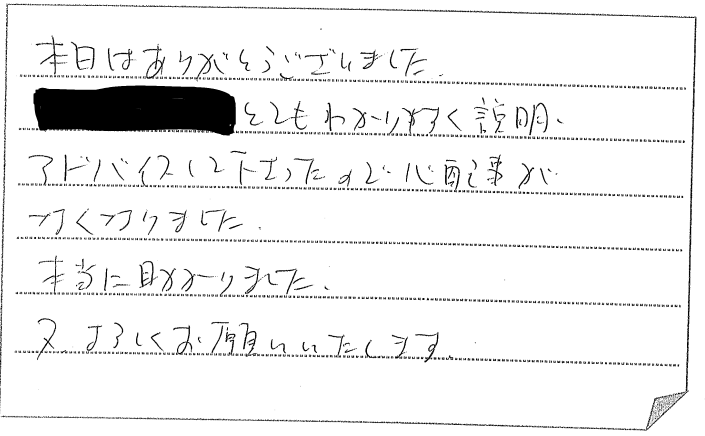 本日はありがとうございました。
とてもわかりやすく説明、
アドバイスして下さったので心配事が
なくなりました。
本当に助かりました。
又、よろしくお願いいたします。